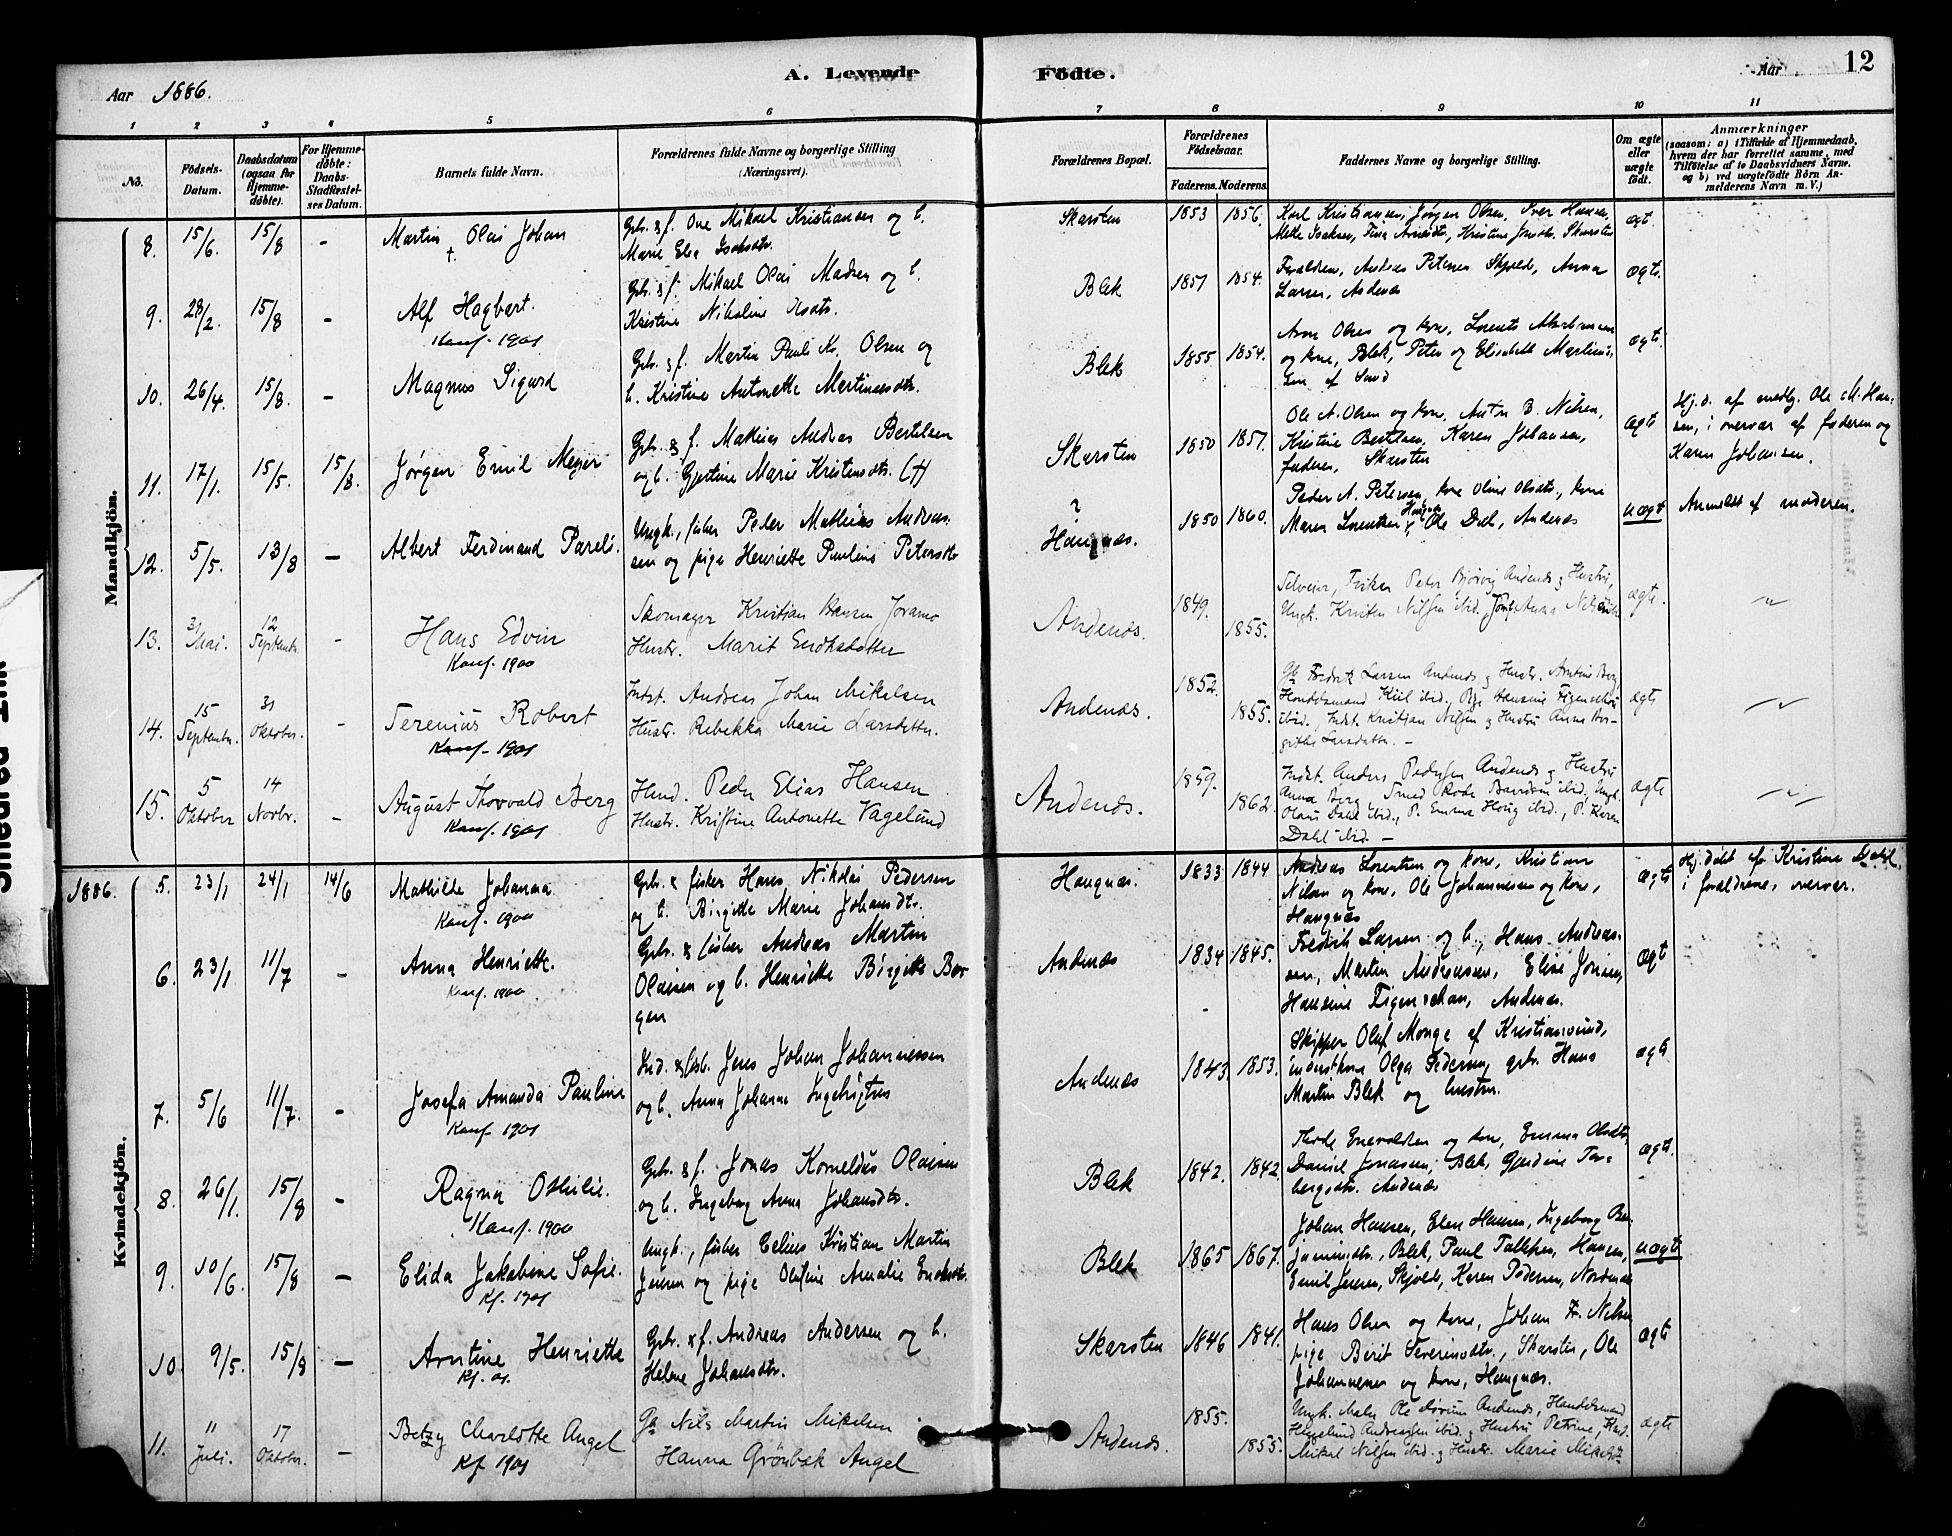 Aar 1886.
A. Levende Födte.
Aar
12
1 2 3 4 5 6 7 8 9 10 11
No.
Födsels-Datum.
Daabsdatum (ogsaa for Hjemme-döbte).
For Hjemme-döbte: Daabs-Stadfæstel-ses Datum.
Barnets fulde Navn.
Forældrenes fulde Navne og borgerlige Stilling (Næringsvei).
Forældrenes Bopæl.
Forældrenes Födselsaar.
Faderens. Moderens.
Faddernes Navne og borgerlige Stilling.
Om ægte eller uægte födt.
Anmærkninger
(saasom: a) i Tilfælde af Hjemmedaab, hvem der har forrettet samme, med Tilföielse af to Daabsvidners Navne. og b) ved uægtefödte Börn Anmelderens Navn m. V.)
Mandkjön.
8. 15/6. 15/8 - Martin Olai Johan †.
Gbr. & f. One Mikael Kristiansen og h.
Marie Elea Isaksdtr.
Skarsten 1853 1856.
Karl Kristiansen, Jørgen Olsen, Iver Hansen,
Mette Isaksen, Kristine Jonsdtr. Skarsten
ægt.
9. 28/2. 15/8 - Alf Hagbart.
Konf. 1901
Gbr. & f. Mikael Olai Madsen og h.
Kristine Nikoline
Blek 1857 1854.
Forældren, Andreas Petersen Skjold, Anna
Larsen, Andenæs
ægte.
10. 26/4. 15/8. - Magnus Sigurd
Gbr. & f. Martin Pauli Kr. Olsen og
h. Kristine Antonette Martinusdtr.
Blek 1855 1854.
Arne Olsen og kone, Lorents
og kone, Blek, Peter og Elisabeth Martinus-
sen af Sund
ægte.
11. 17/1. 15/5. 15/8. Jørgen Emil Meyer
Gbr. & f. Mathias Andreas Bertelsen
og h. Gjertine Marie Kristensdtr. (†)
Skarsten 1850 1857.
Ole A. Olsen og kone, Anton B. Nilsen,
Kristine Bertelsen, Karen Johansen,
faderen, Skarsten
ægte
Hj.d. af medlg. Ole M. Han-
sen, i overvær af faderen og
Karen Johansen.
12. 5/5. 13/8 - Albert Ferdinand Pareli.
Ungk., fisker Peder Mathias Andreas-
sen og pige Henriette Pauline Petersdtr
?
Haugnæs. 1850 1860.
Peder A. Petersen, kone Oline Olsdtr., kone
Maren Lorentzen Haugnæs, Ole Dal, Andenæs
uægt
Anmeldt af moderen.
13. 31 Mai. 12 Septembr. - Hans Edvin
Konf. 1900
Skomager Kristian Hansen Joramo
Hustr. Marit Eriksdatter
Andenæs. 1849. 1855.
Selveier, Fisker Peter Bjørvig Andenæs og Hustru,
Ungk. Kristen Nilsen ibid. Anna
ægte.
"
14. 15 Septembr. 31 Oktober. - Serenius Robert
Konf. 1901
Indst. Andreas Johan Mikalsen
Hustr. Rebekka Marie Larsdatter.
Andenæs. 1852. 1855.
Fredrik Larsen Andenæs og Hustr. Arntine Berg,
Handelsmand Kiil ibid. Pige Hansine Figenschou
ibid., Indst. Kristian Nilsen og Hustru Anne Bir-
gitte Larsdatter. -
ægte
"
15. 5 Oktober 14 Novbr. - August Thorvald Berg
Konf. 1901
Hand. Peder Elias Hansen
Hustr. Kristine Antonette Vagelund
Andenæs. 1859. 1862.
Indst. Anders Pedersen Andenæs og Hustru
Anna Berg, Smed ibid, Ungk.
Olaus Dahl ibid., P. Emma Houg ibid., P. Karen
Dahl ibid. -
ægte
"
Kvindekjön.
1886.
5. 23/1 24/1 14/6 Mathilde Johanna
Konf. 1900
Gbr. & fisker Hans Nikolai Pedersen
og h. Birgitte Marie Johansdtr.
Haugnæs. 1833 1844
Andreas Lorentzen og kone, Kristian
Nilsen og kone, Ole Johannesen og kone,
Haugnæs
ægte
Hj.døbt af Kristine Dahl
i forældrenes overvær.
6. 23/1 11/7 - Anna Henriette.
Konf. 1900
Gbr. & fisker Andreas Martin
Olaisen og h. Henriette Birgitte Bor
gen
Andenæs 1834 1845.
Fredrik Larsen og h., Hans Andreas-
sen, Martin Andreassen, Elise Jonsen,
Hansine Figenschau, Andenæs.
ægt
7. 5/6 11/7. - Josefa Amanda Pauline
Konf 1901
Ind. & fisk. Jens Johan Johannessen
og h. Anna Johanna Ingebrigtsen
Andenæs 1843. 1853.
Skipper Oluf Monge af Kristiansund,
inderstkone Olga Pedersen, gbr. Hans
Martin Blek og hustru.
ægte
8. 26/1. 15/8 - Ragna Othilie.
Konf. 1900
Gbr. & f. Jonas Kornelius Olaisen
og h. Ingeborg Anna Johansdtr.
Blek 1842. 1842
Enevoldsen og kone, Emma Olsdtr,
Daniel Jonassen, Blek, Gjertine Tor-
bergsdtr. Andenæs
ægte.
9. 10/6. 15/8 - Elida Jakobine Sofie.
Kf. 1901
Ungk., fisker Celius Kristian Martin
Jensen og pige Olufine Amalie
Blek 1865 1867.
Johan Hansen, Elen Hansen, Ingeborg Ben-
jaminsdtr., Blek, Paul Hansen,
Emil Jensen, Skjolde, Karen Pedersen,
uægt
10 9/5. 15/8 - Arntine Henriette
Kf. 01.
Gbr. & f. Andreas Andersen og h.
Helene Johansdtr.
Skarsten 1846 1841.
Hans Olsen og kone, Johan Fr. Nilsen
pige Berit Severinsdtr., Skarsten, Ole
Johannesen og kone, Haugnæs.
ægte
11. 11 Juli. 17 Oktober. - Betzy Charlotte Angel
Kf 1901
Nils Martin Mikalsen
Hanna Grönbek Angel
Andenæs. 1855. 1855.
Ungk. Maler Ole Andenæs, Handelsmand
Hegelund Andreassen ibid. og Hustru Petrine,
Mikal Nilsen ibid. og Hustr. Marie
ægte